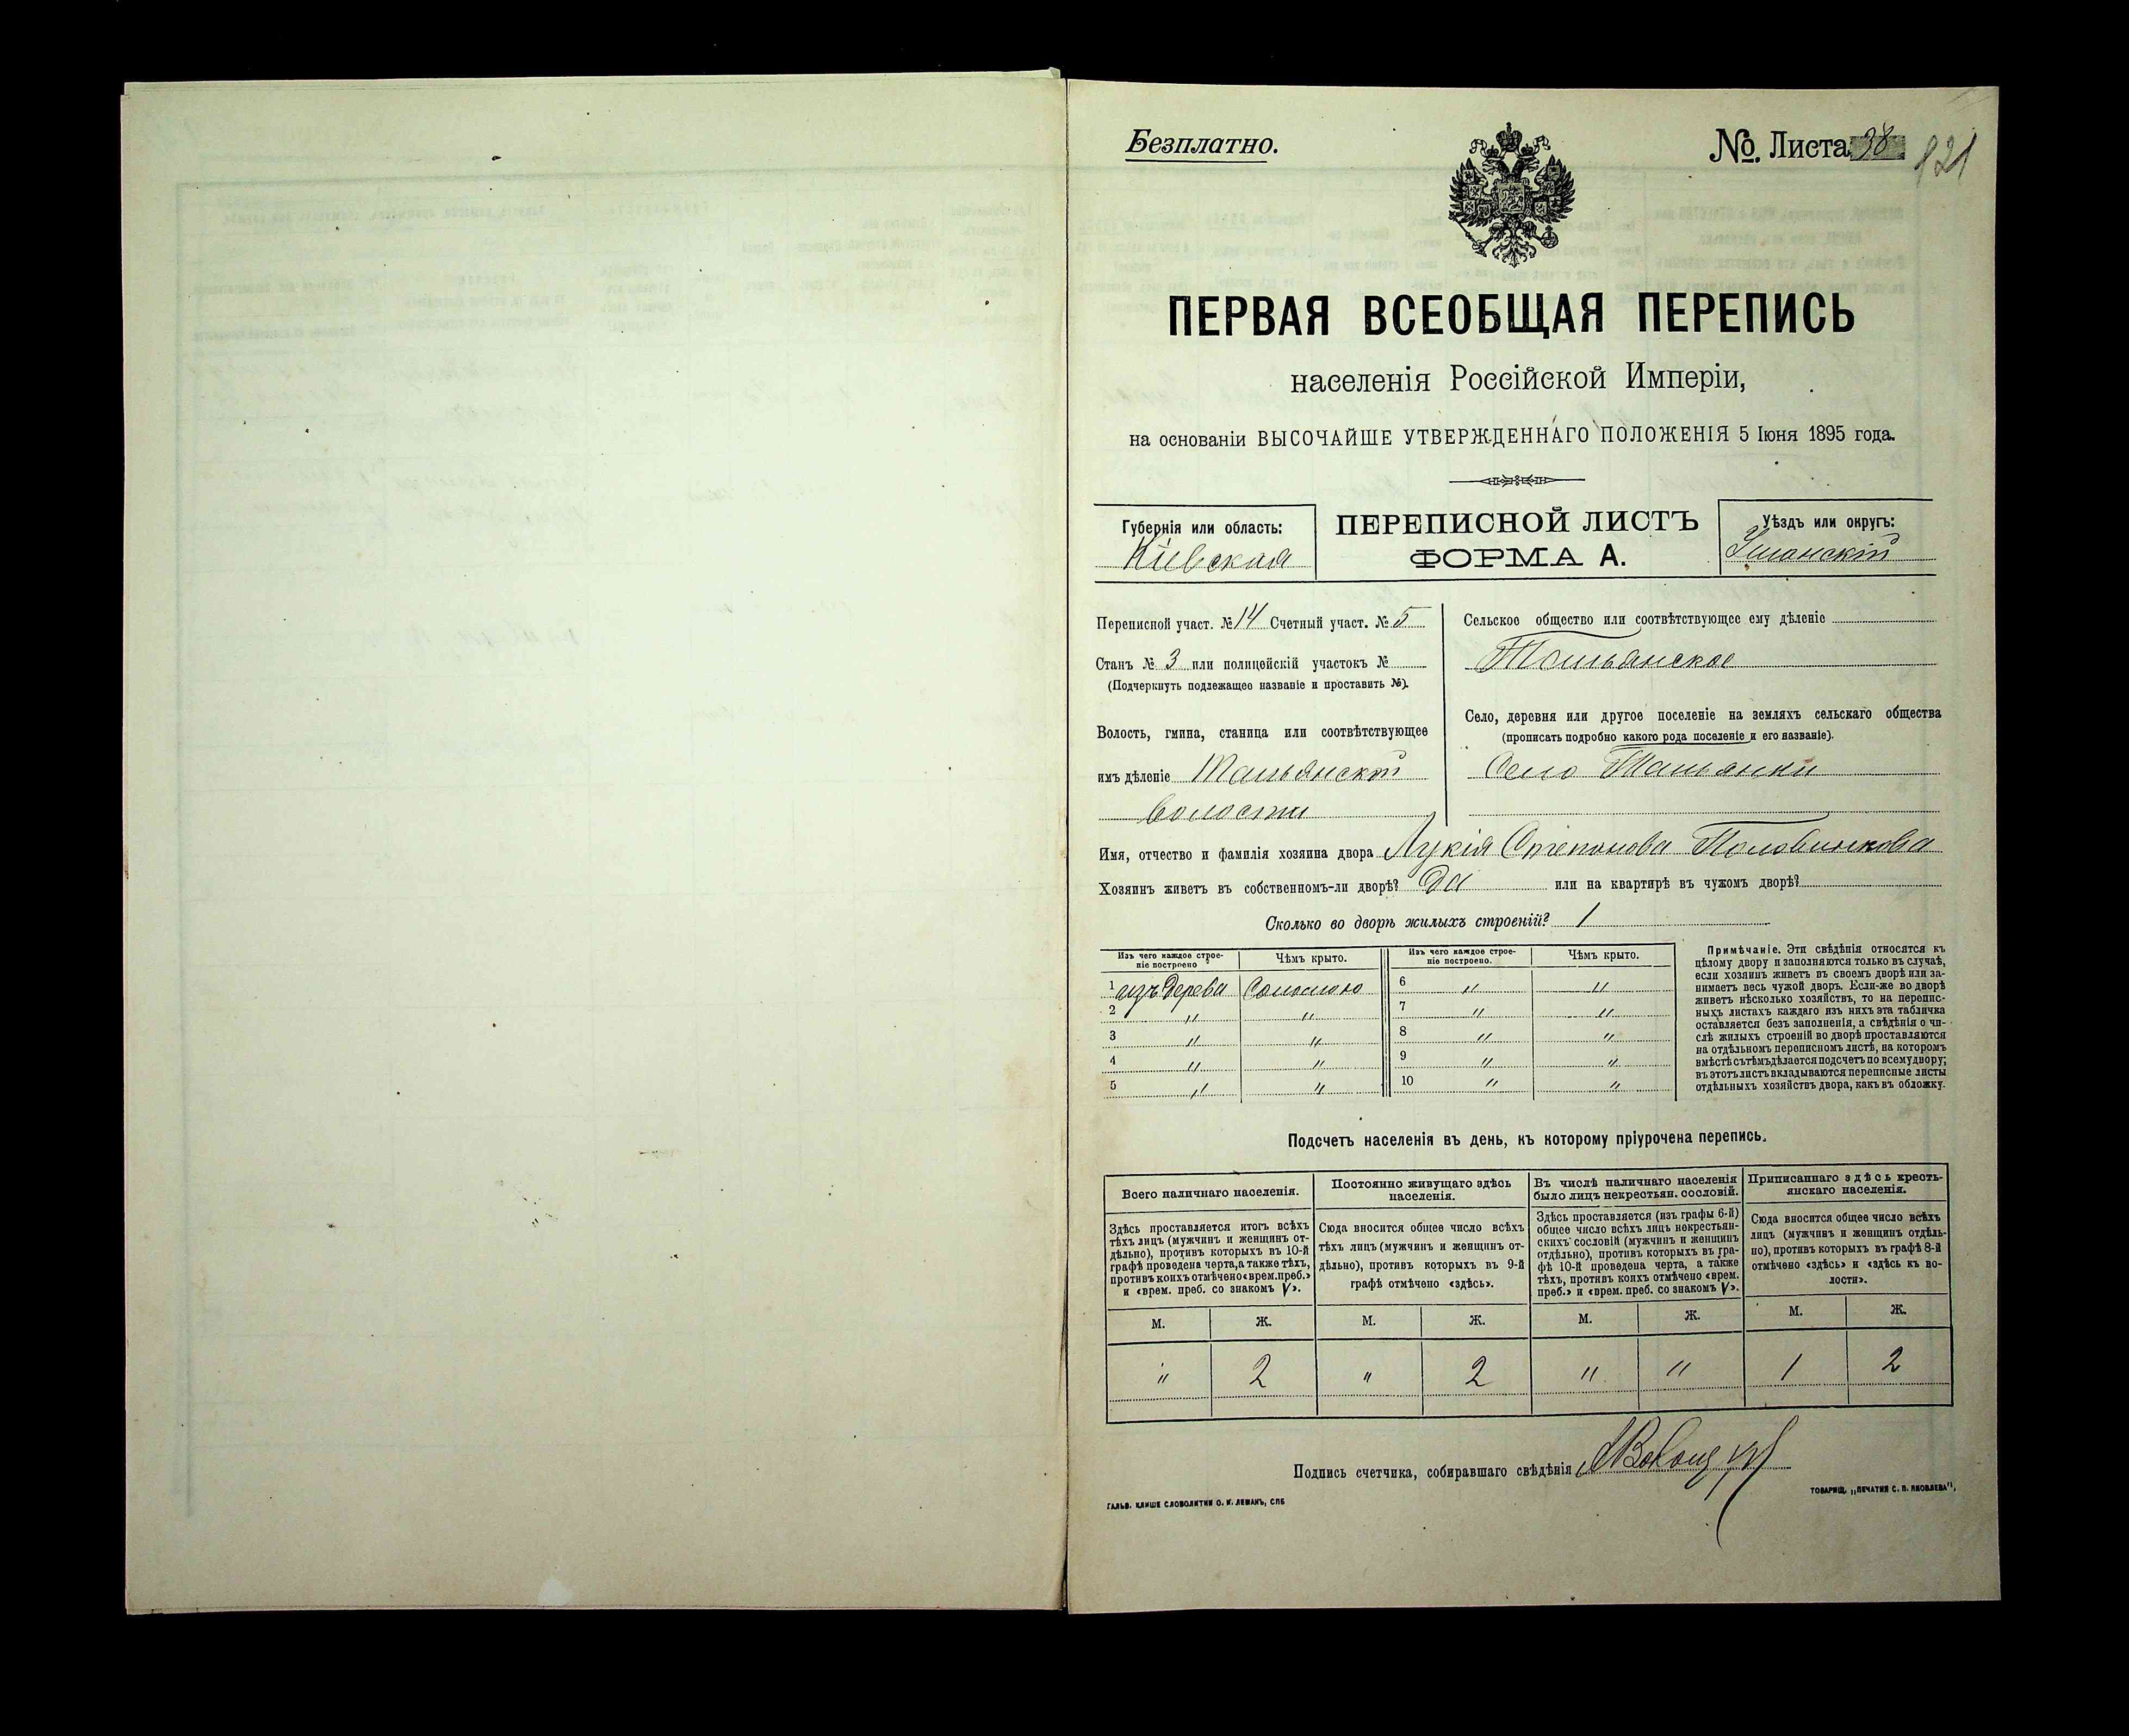 Безплатно.
№. Листа 38
821
ПЕРВАЯ ВСЕОБЩАЯ ПЕРЕПИСЬ
населенія Россійской Имперіи,
на основаніи ВЫСОЧАЙШЕ УТВЕРЖДЕННАГО ПОЛОЖЕНІЯ 5 Іюня 1895 года.
Губернія или область:
Кіевская
ПЕРЕПИСНОЙ ЛИСТЪ
ФОРМА А.
Уѣздъ или округъ:
Уманскій
Переписной участ. № 14 Счетный участ. № 5
Станъ № 3 или полицейскій участокъ №
(Подчеркнуть подлежащее названіе и проставить №).
Волость, гмина, станица или соотвѣтствующее
имъ дѣленіе Тальянской
волости
Сельское общество или соотвѣтствующее ему дѣленіе
Тальянское
Село, деревня или другое поселеніе на земляхъ сельскаго общества
(прописать подробно какого рода поселеніе и его названіе).
Село Тальянки
Имя, отчество и фамилія хозяина двора Лукія Степанова Половинкова
Хозяинъ живетъ въ собственномъ-ли дворѣ? да или на квартирѣ въ чужомъ дворѣ?
Сколько во дворѣ жилыхъ строеній? 1
Изъ чего каждое строе-
ніе построено
Чѣмъ крыто.
Изъ чего каждое строе-
ніе построено.
Чѣмъ крыто.
1 изъ дерева Соломою 6 " "
2 " " 7 " "
3 " " 8 " "
4 " " 9 " "
5 " " 10 " "
Примѣчаніе. Эти свѣдѣнія относятся къ
цѣлому двору и заполняются только въ случаѣ,
если хозяинъ живетъ въ своемъ дворѣ или за-
нимаетъ весь чужой дворъ. Если-же во дворѣ
живетъ нѣсколько хозяйствъ, то на перепис-
ныхъ листахъ каждаго изъ нихъ эта табличка
оставляется безъ заполненія, а свѣдѣнія о чи-
слѣ жилыхъ строеній во дворѣ проставляются
на отдѣльномъ переписномъ листѣ, на которомъ
вмѣстѣ съ тѣмъ дѣлается подсчетъ по всему двору;
въ этотъ листъ вкладываются переписные листы
отдѣльныхъ хозяйствъ двора, какъ въ обложку.
Подсчетъ населенія въ день, къ которому пріурочена перепись.
Всего наличнаго населенія.
Здѣсь проставляется итогъ всѣхъ
тѣхъ лицъ (мужчинъ и женщинъ от-
дѣльно), противъ которыхъ въ 10-й
графѣ проведена черта, а также тѣхъ,
противъ коихъ отмѣчено «врем. преб.»
и «врем. преб. со знакомъ V».
Постоянно живущаго здѣсь
населенія.
Сюда вносится общее число всѣхъ
тѣхъ лицъ (мужчинъ и женщинъ от-
дѣльно), противъ которыхъ въ 9-й
графѣ отмѣчено «здѣсь».
Въ числѣ наличнаго населенія
было лицъ некрестьян. сословій.
Здѣсь проставляется (изъ графы 6-й)
общее число всѣхъ лицъ некрестьян-
скихъ сословій (мужчинъ и женщинъ
отдѣльно), противъ которыхъ въ гра-
фѣ 10-й проведена черта, а также
тѣхъ, противъ коихъ отмѣчено «врем.
преб.» и «врем. преб. со знакомъ V».
Приписаннаго здѣсь кресть-
янскаго населенія.
Сюда вносится общее число всѣхъ
лицъ (мужчинъ и женщинъ отдѣль-
но), противъ которыхъ въ графѣ 8-й
отмѣчено «здѣсь» и «здѣсь къ во-
лости».
М. Ж. М. Ж. М. Ж. М. Ж.
" 2 " 2 " " 1 2
Подпись счетчика, собиравшаго свѣдѣнія
ГАЛЬВ. КЛИШЕ СЛОВОЛИТНИ О. И. ЛЕМАНЪ, СПБ
ТОВАРИЩ. „ПЕЧАТНЯ С. П. ЯКОВЛЕВА",